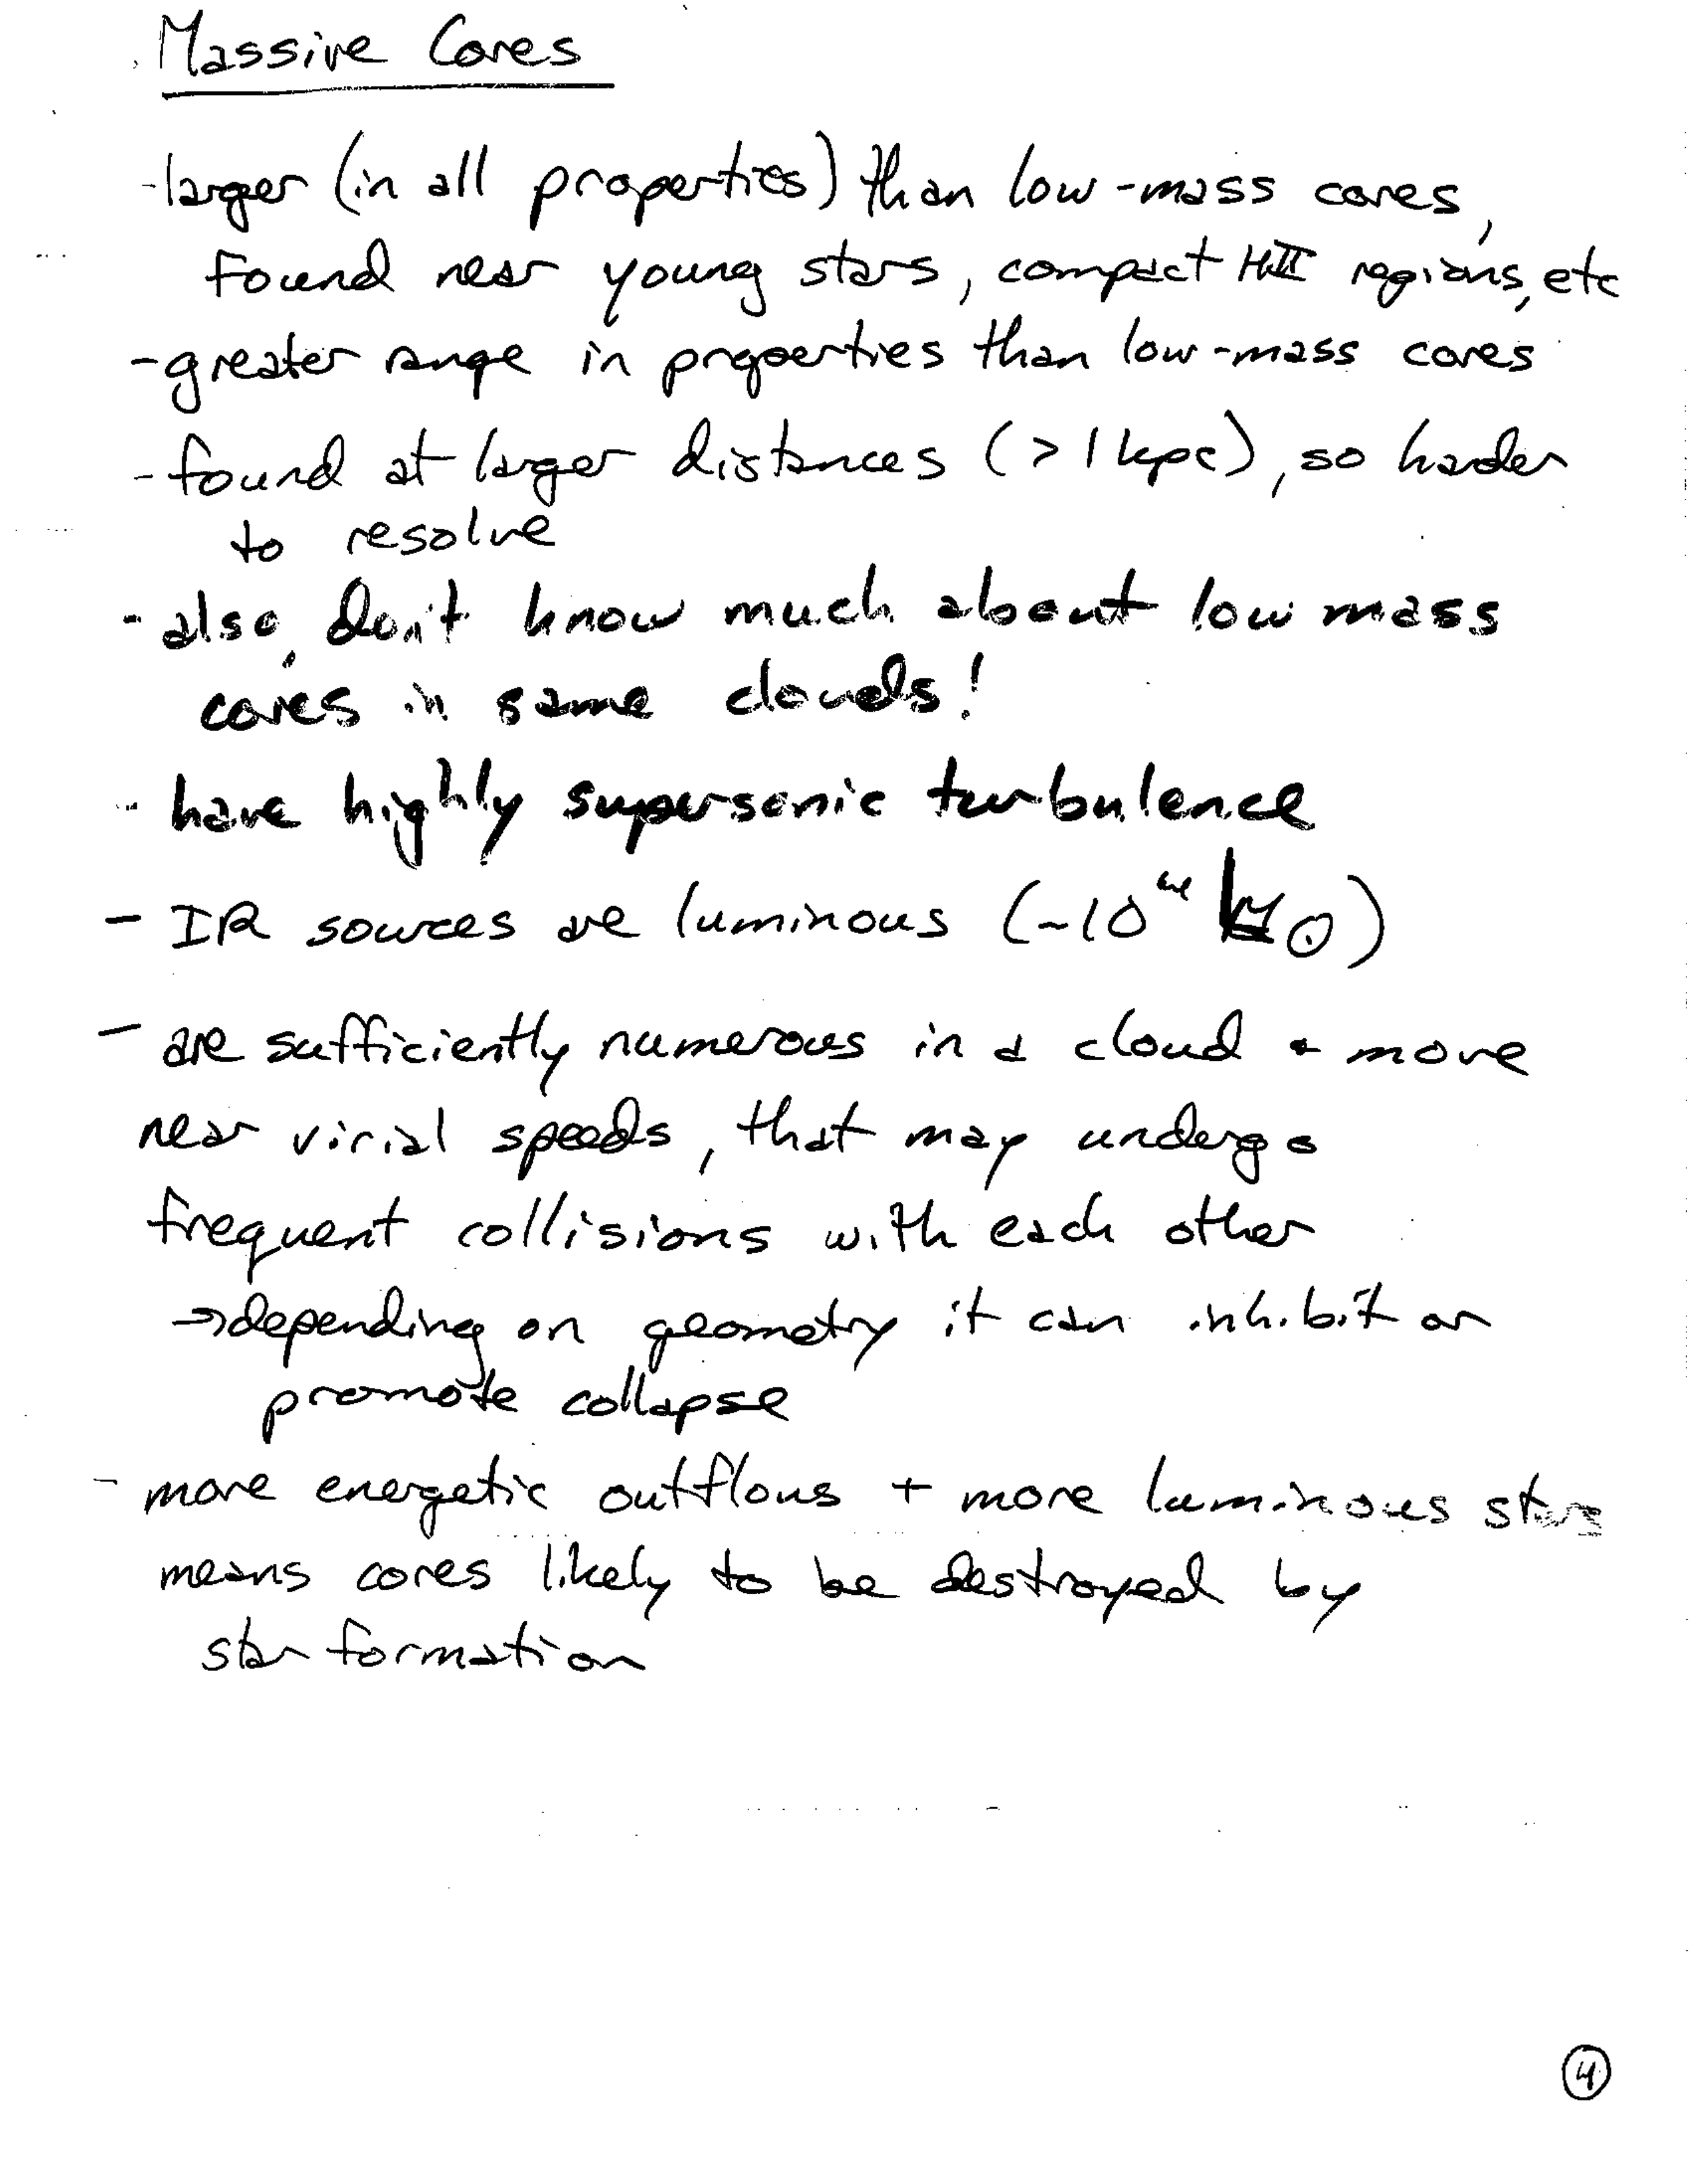 Massive Cores
- larger (in all properties) than low-mass cores,
found near young stars, compact HII regions, etc
- greater range in properties than low-mass cores
- found at larger distances (> 1 kpc), so harder
to resolve
- also, don't know much about low mass
cores in same clouds!
- have highly supersonic turbulence
- IR sources are luminous (~10⁴ L⊙)
- are sufficiently numerous in a cloud + move
near virial speeds, that may undergo
frequent collisions with each other
→ depending on geometry it can inhibit or
promote collapse
- more energetic outflows + more luminous stars
means cores likely to be destroyed by
star formation
4